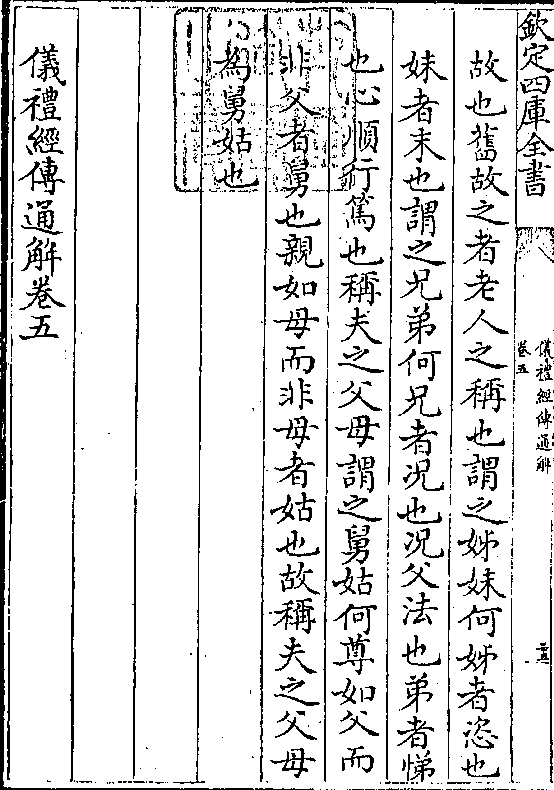 欽定四庫全書
儀禮經傳通解
卷五
故也舊故之者老人之稱也謂之姊妹何姊者恣也
妹者末也謂之兄弟何兄者况也况父法也弟者悌
也心順行篤也稱夫之父母謂之舅姑何尊如父而
非父者舅也親如母而非母者姑也故稱夫之父母
為舅姑也
儀禮經傳通解卷五